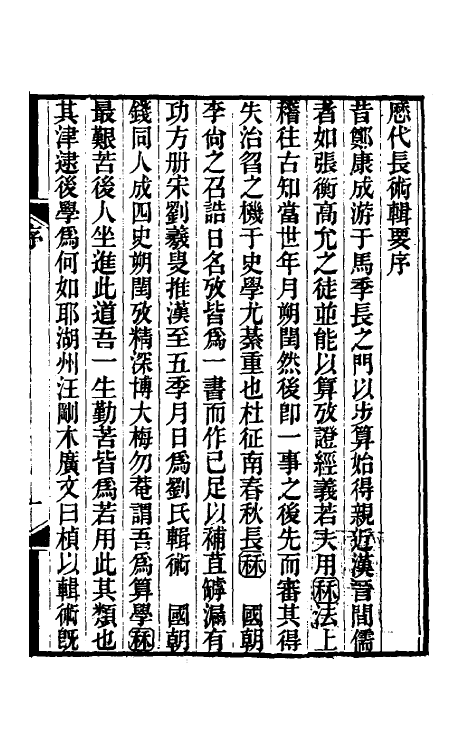 歷代長術輯要序
昔鄭康成游于馬季長之門以步算始得親近漢晉間儒
者如張衡高允之徒並能以算攷證經義若夫用秝法上
稽往古知當世年月朔閏然後卽一事之後先而審其得
失治忽之機于史學尤綦重也杜征南春秋長秝　國朝
李尙之召誥日名攷皆爲一書而作已足以補苴罅漏有
功方册宋劉羲叟推漢至五季月日爲劉氏輯術　國朝
錢同人成四史朔閏攷精深博大梅勿菴謂吾爲算學秝
最艱苦後人坐進此道吾一生勤苦皆爲若用此其類也
其津逮後學爲何如耶湖州汪剛木廣文曰楨以輯術旣
序
一